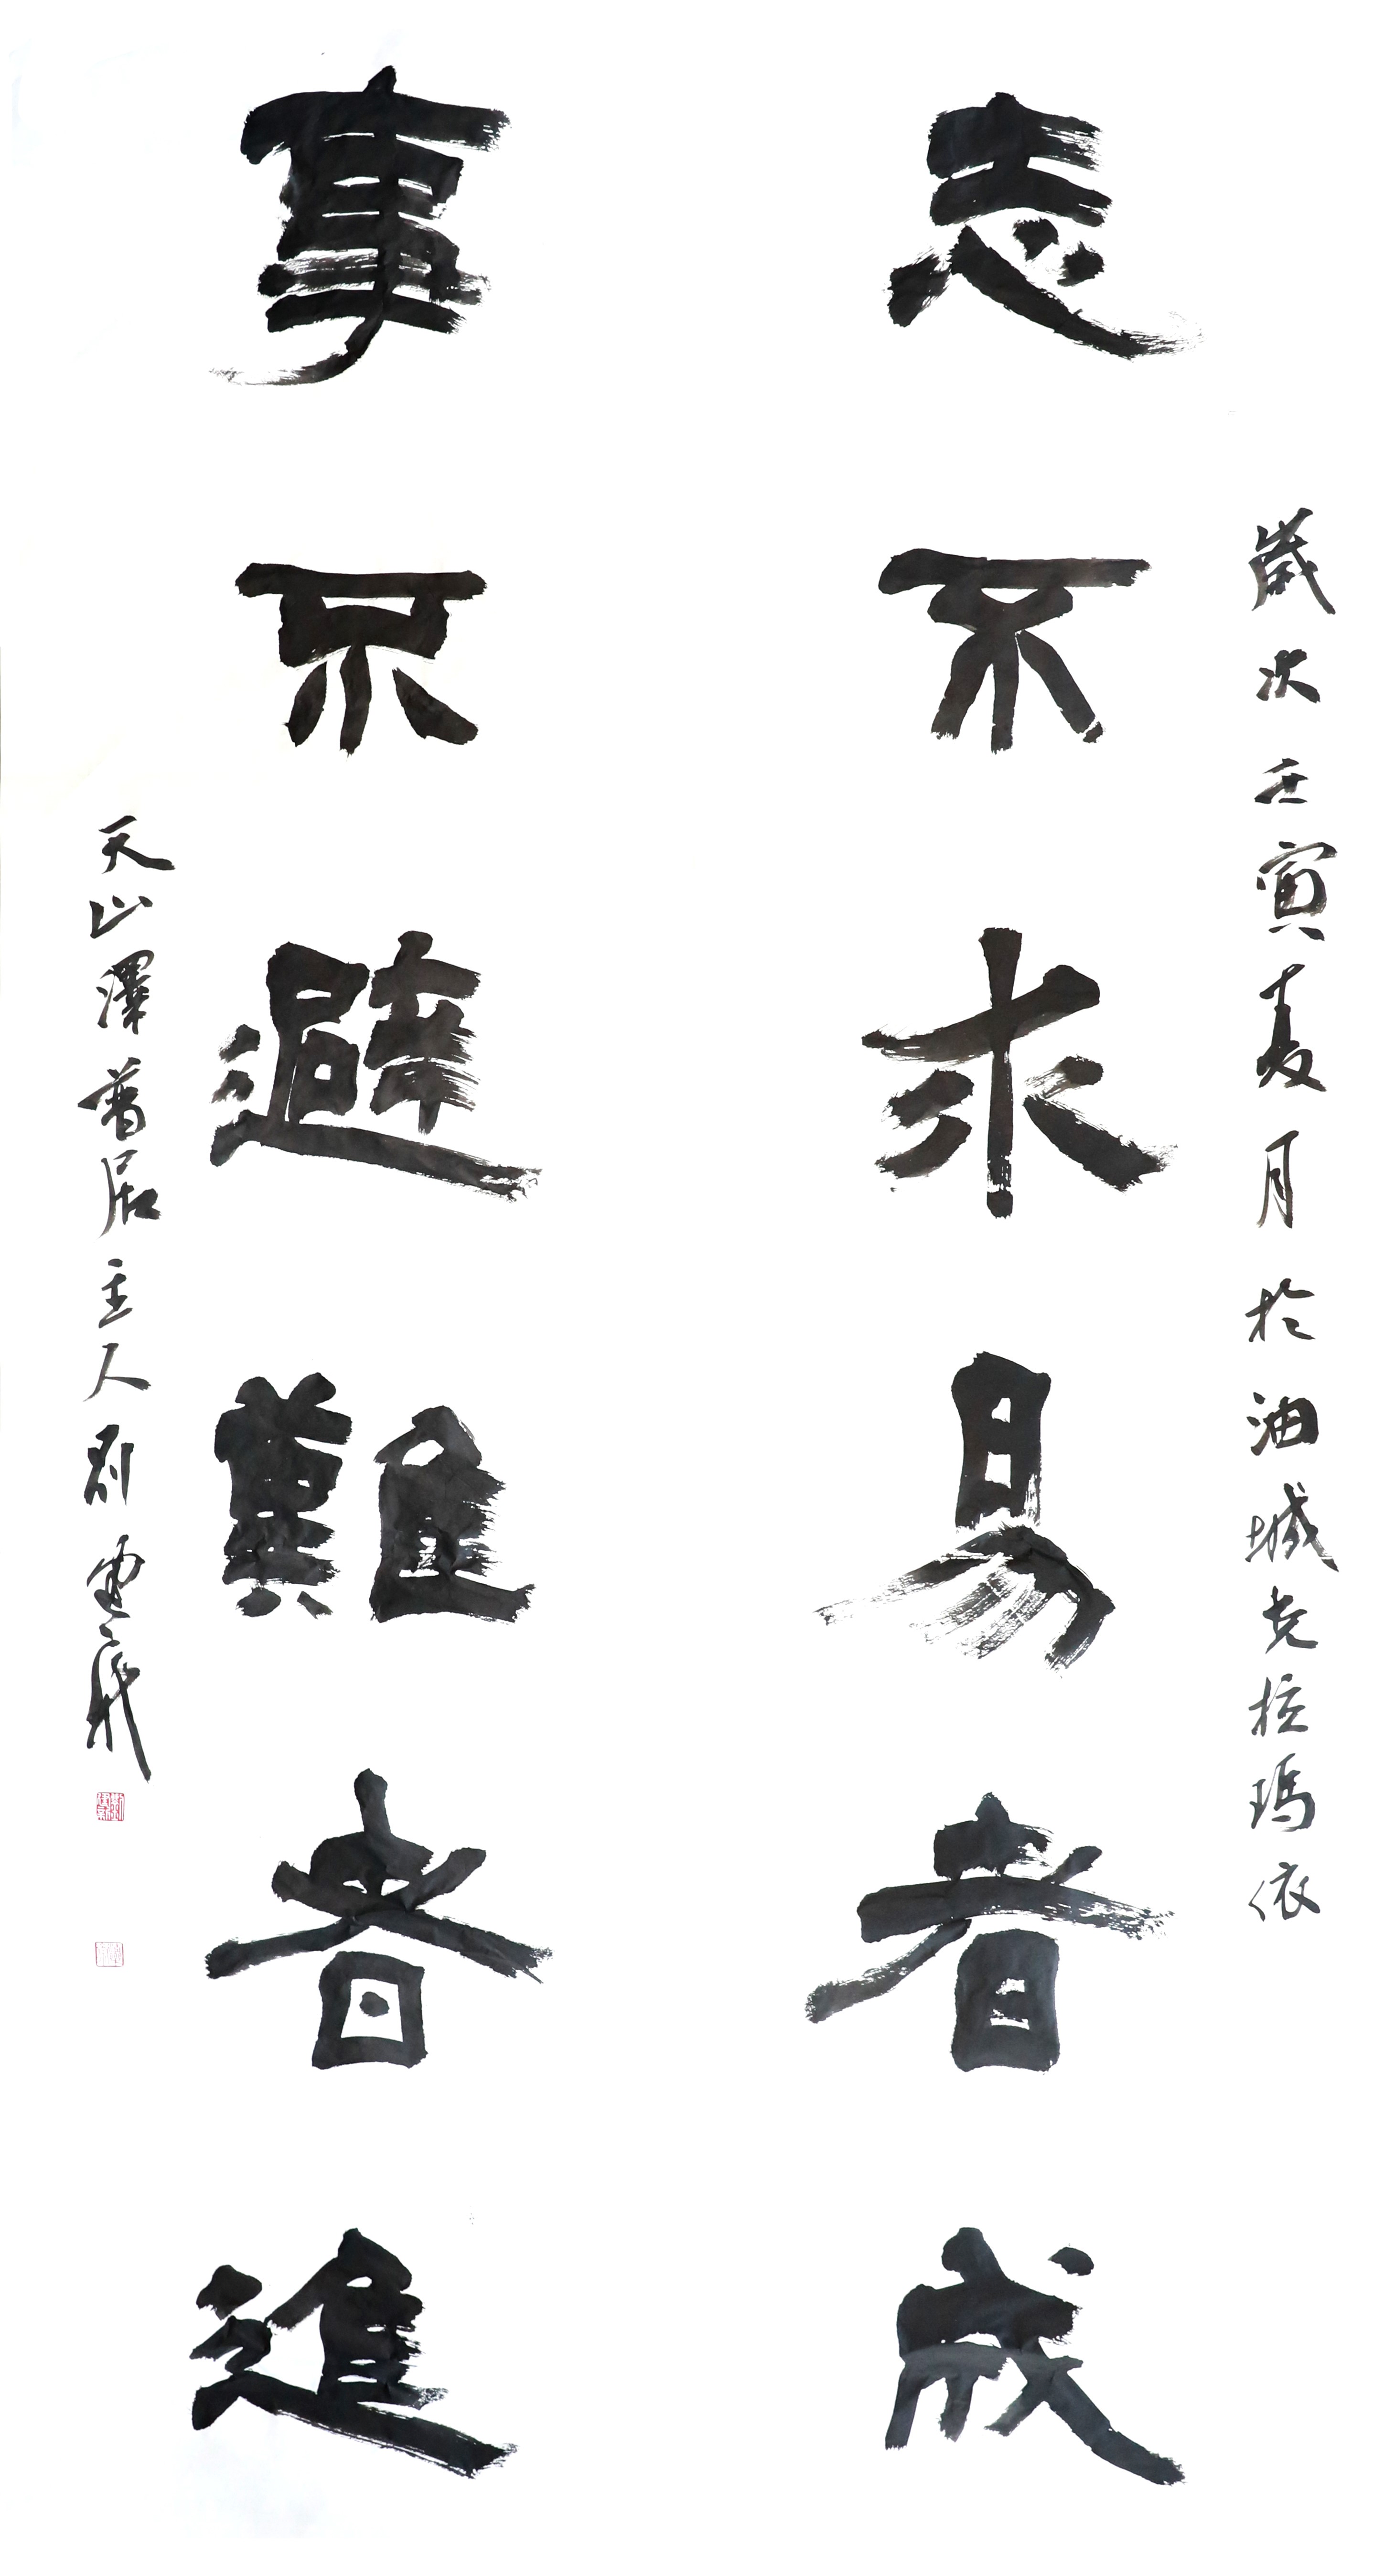 歲次壬寅夏月於油城克拉瑪依
志不求易者成
事不避難者進
天山澤普居主人劉建